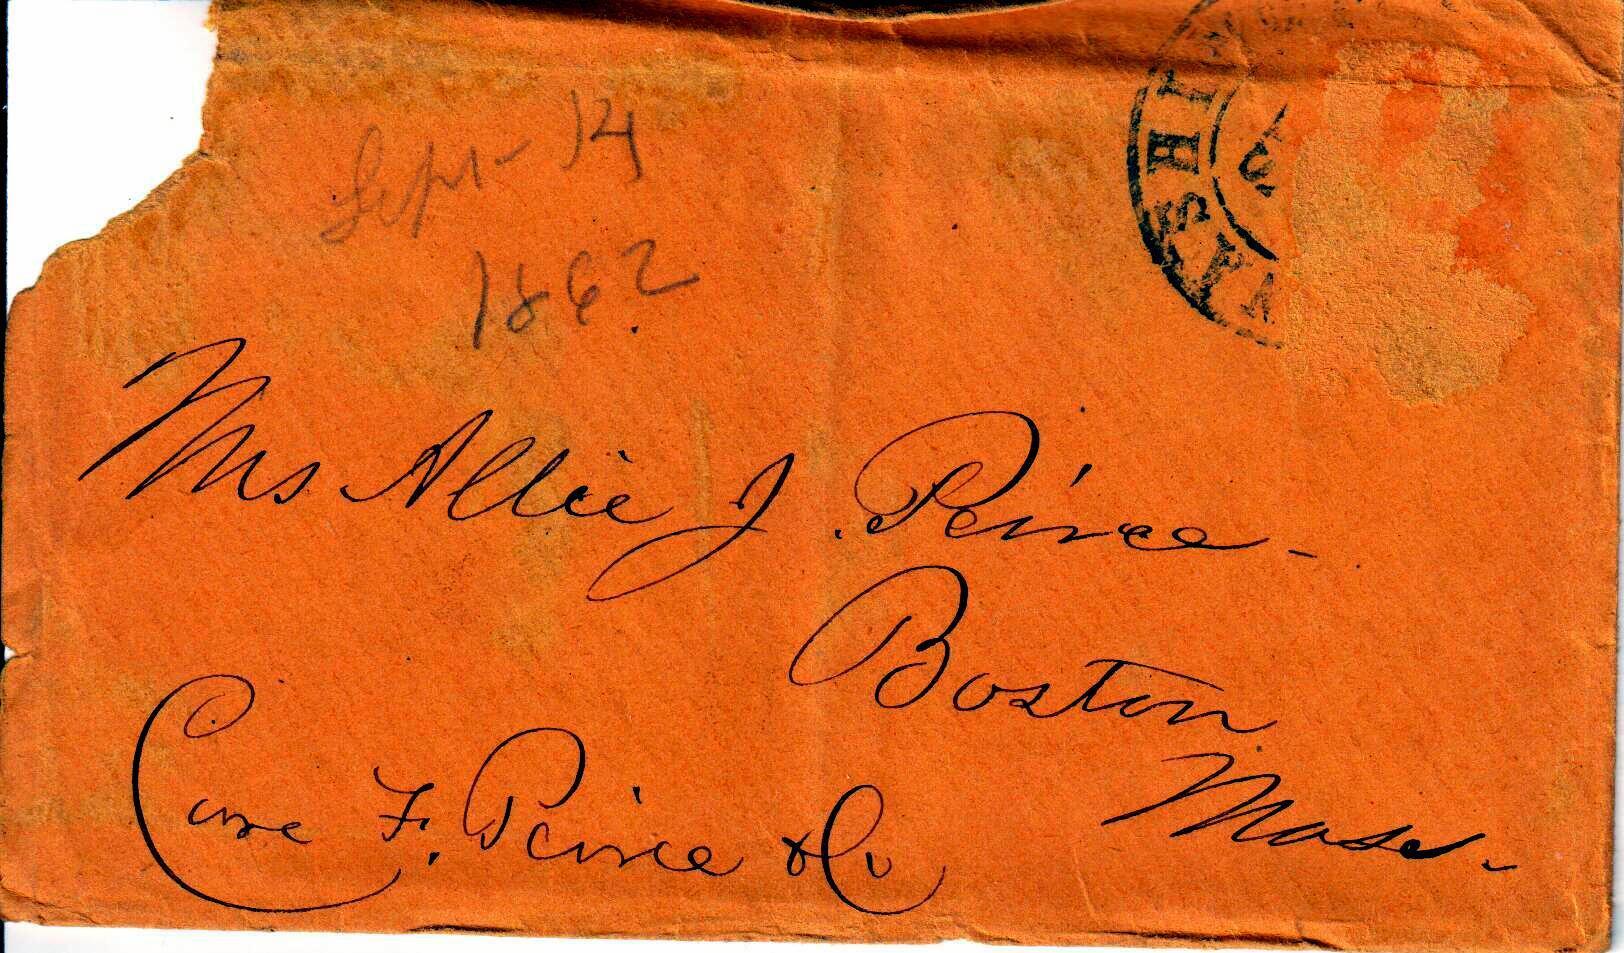 Sept - 14
1862
WASHIN
S
Mrs Allie J. Peirce -
Boston
Mass.
Care F. Peirce & Co